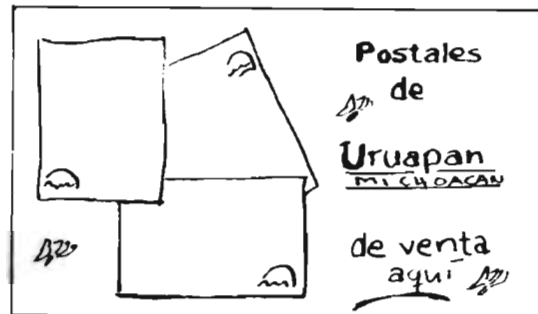 Postales
de
Uruapan
MICHOACAN
de venta
aquí